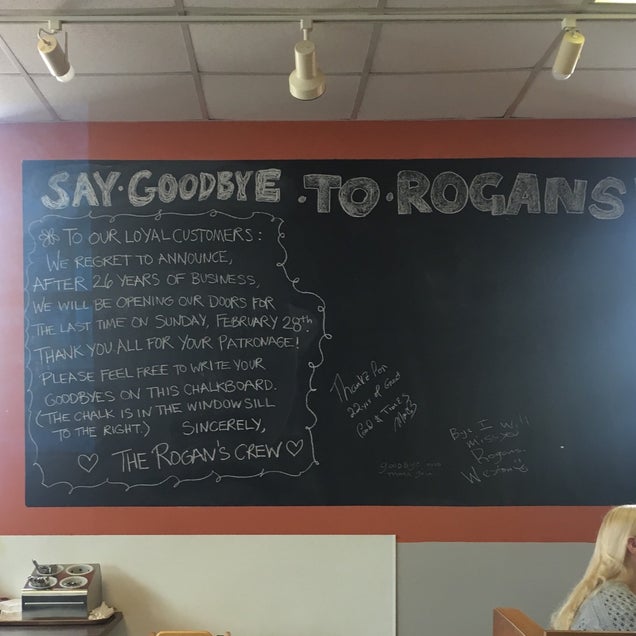 SAY·GOODBYE·TO·ROGANS
TO OUR LOYAL CUSTOMERS:
WE REGRET TO ANNOUNCE,
AFTER 26 YEARS OF BUSINESS,
WE WILL BE OPENING OUR DOORS FOR
THE LAST TIME ON SUNDAY, FEBRUARY 28th.
THANK YOU ALL FOR YOUR PATRONAGE!
PLEASE FEEL FREE TO WRITE YOUR
GOODBYES ON THIS CHALKBOARD.
(THE CHALK IS IN THE WINDOWSILL
TO THE RIGHT.) SINCERELY,
♡ THE ROGAN'S CREW ♡
22 yrs of Good
Food &
goodbye
Bye I Will
Miss you
Rogans